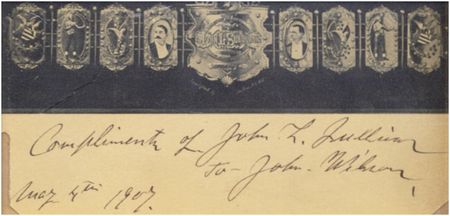 Compliments of John L. Sullivan
to John Wilson,
May 4th 1907.